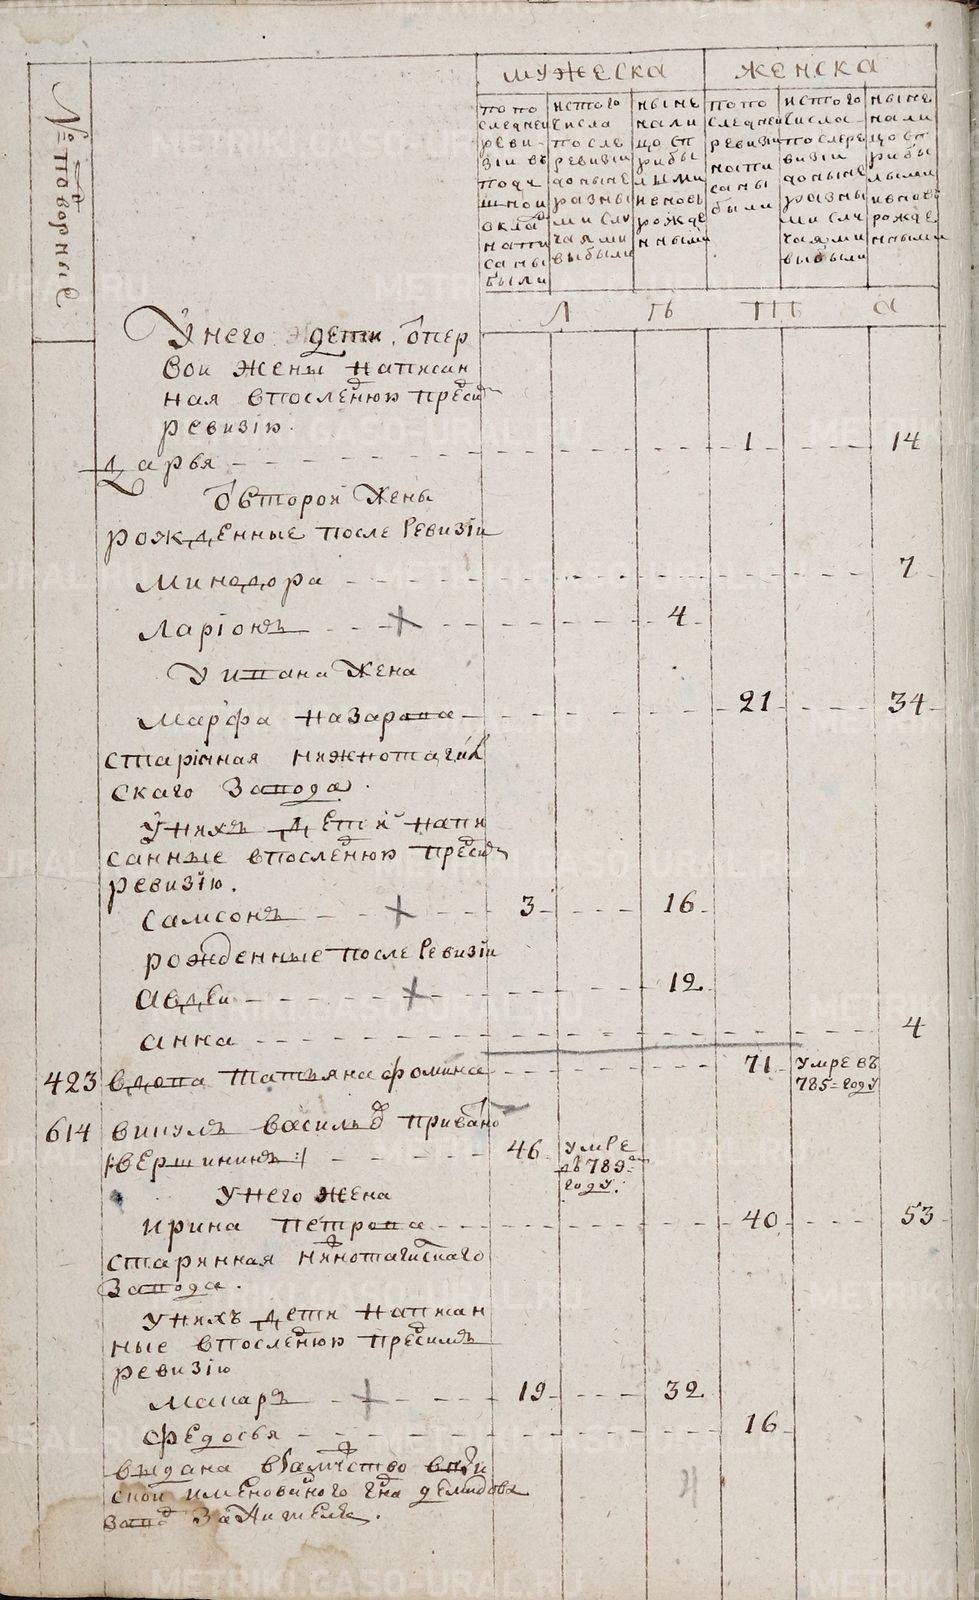 № подворные
мужеска
женска
по по
следней
реви-
зіи въ
поду
шной
окла
напи
саны
были
исого
числа
после
ревизіи
до ныне
разны
ми слу
чаями
выбыли
ныне
нали
цо сп
рибы
лыми
и вновь
рожде
нными
по по
следней
ревизіи
напи
саны
были
истого
числа
после ре
визіи
до ныне
разны
ми слу
чаями
выбыли
ныне
нали
цо сп
рибы
лыми
и вновь
рожде
нными
Л ѣ т а
У него дети от пер
вои жены написан
ная впоследнюю пред сію
ревизію.
Дарья 1 14
От второй жены
рожденные после Ревизіи
Минодора 7
Ларіонъ 4
У ивана жена
Марфа назарова 21 34
старинная нижнотагил
скаго завода.
У нихъ детй напи
санные впоследнюю пред сію
ревизію.
Самсонъ 3 16
рожденные после Ревизіи
Авдеи 12
анна 4
423 вдова татьяна фомина 71 умре въ
785= году
614 викулъ васильев
46 умре
въ 789=
году.
/:вершининъ:/
У него жена
ирина петрова 40 53
старинная нижнотагилскаго
завода.
У нихъ дети написан
ные впоследнюю пред симъ
ревизію
Макаръ 19 32
Федосья 16
выдана в замужство
скои имяновонного гна демидова
завод за жителя.
METRIKI.GASO-URAL.RU